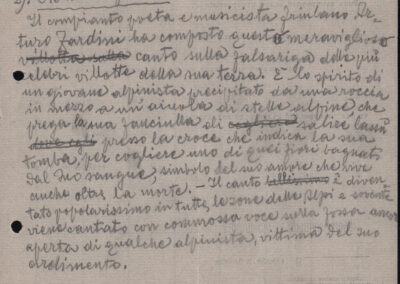 Il compianto poeta e musicista friulano Ar-
turo Zardini ha composto questo meraviglioso
villotta sulla canto sulla falsariga delle più
celebri villotte della sua terra. È lo spirito di
un giovane alpinista precipitato da una roccia
in mezzo a un aiuola di stelle alpine che
prega la sua fanciulla di cogliere salire lassù
dove egli presso la croce che indica la sua
tomba, per cogliere uno di quei fiori bagnati
dal suo sangue, simbolo del suo amore che vive
anche oltre la morte. - Il canto bellissimo è diven-
tato popolarissimo in tutte le zone delle Alpi e sovente
viene cantato con commossa voce sulla fossa ancor
aperta di qualche alpinista, vittima del suo
ardimento.